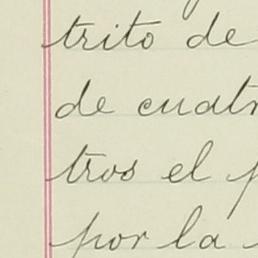 trito de
de cuatr
tros el p
por la